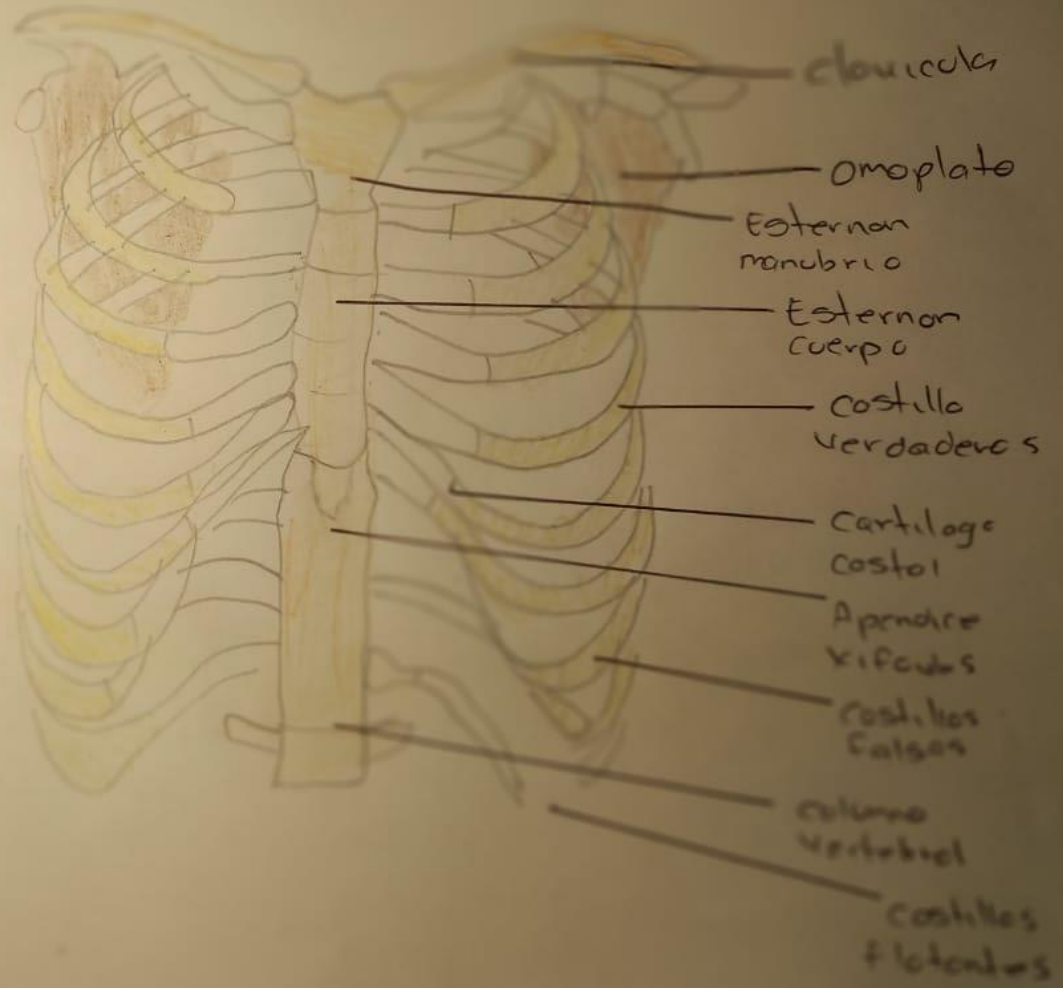 clauicula
omoplato
Esternon
manubrio
Esternon
cuerpo
costilla
verdaderas
cartilago
costal
Apendice
xifoides
costillas
falsas
columna
vertebral
costillas
flotantes